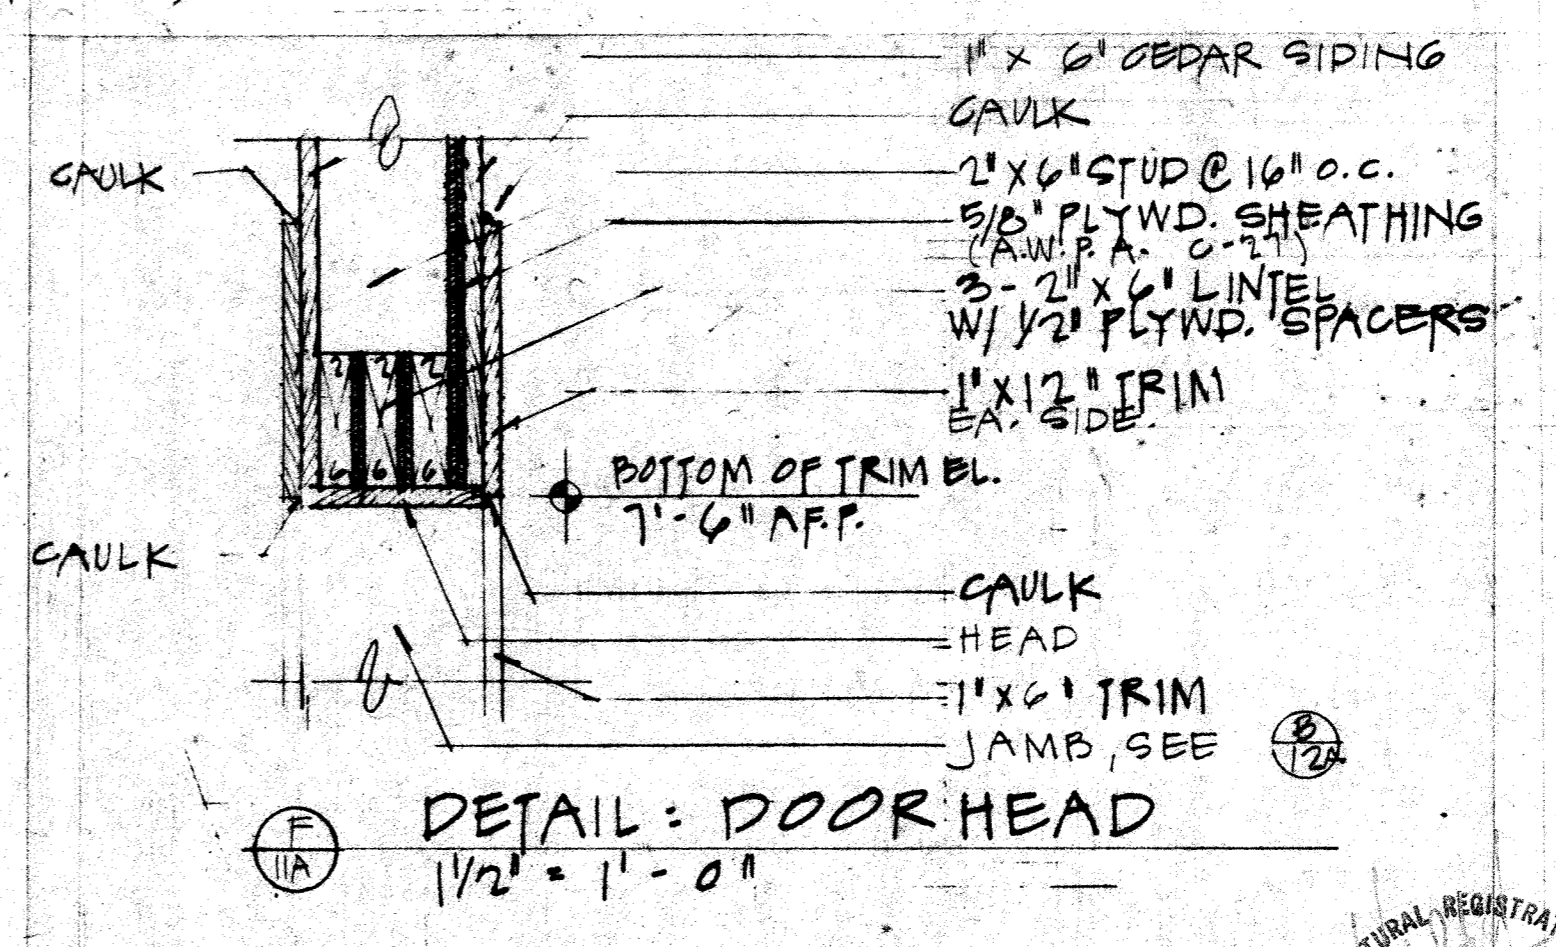 1" x 6" CEDAR SIDING
CAULK
CAULK
2" x 6" STUD @ 16" O.C.
5/8" PLYWD. SHEATHING
(A.W.P.A. C-27)
3 - 2" x 6" LINTEL
W/ 1/2" PLYWD. SPACERS
2 2 2
6 6 6
1" x 12" TRIM
EA. SIDE.
BOTTOM OF TRIM EL.
7'-6" A.F.F.
CAULK
CAULK
HEAD
1" x 6" TRIM
JAMB, SEE
B
12A
F
11A
DETAIL: DOOR HEAD
1 1/2" = 1' - 0"
REGISTRA